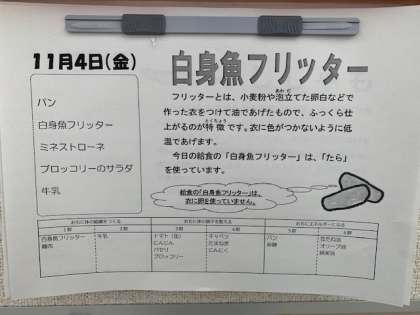 11月4日(金)
白身魚フリッター
パン
白身魚フリッター
ミネストローネ
ブロッコリーのサラダ
牛乳
フリッターとは、小麦粉や泡立てた卵白などで
作った衣をつけて油であげたもので、ふっくら仕
上がるのが特徴です。衣に色がつかないように低
温であげます。
今日の給食の「白身魚フリッター」は、「たら」
を使っています。
給食の「白身魚フリッター」は、
衣に卵を使っていません。
おもに体の組織をつくる
おもに体の調子を整える
おもにエネルギーになる
1群 2群 3群 4群 5群 6群
白身魚フリッター 牛乳 トマト(缶) キャベツ パン
にんじん たまねぎ オリーブ油
パセリ にんにく
ブロッコリー